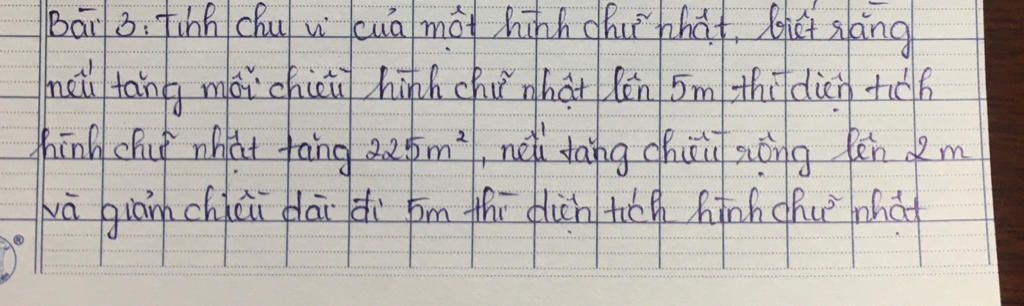 Bài 3: Tính chu vi của một hình chữ nhật, biết rằng
nếu tăng mỗi chiều hình chữ nhật lên 5m thì diện tích
hình chữ nhật tăng 225m², nếu tăng chiều rộng lên 2m
và giảm chiều dài đi 5m thì diện tích hình chữ nhật